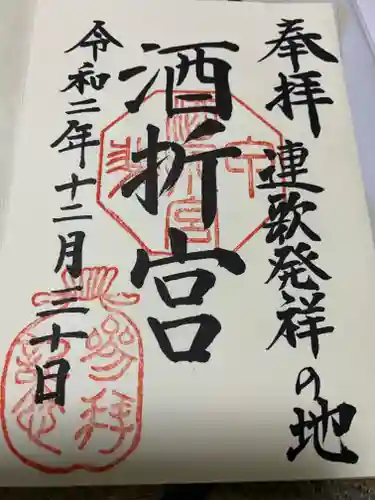 奉拝 連歌発祥の地
酒折宮
令和二年十二月三十日
参拝